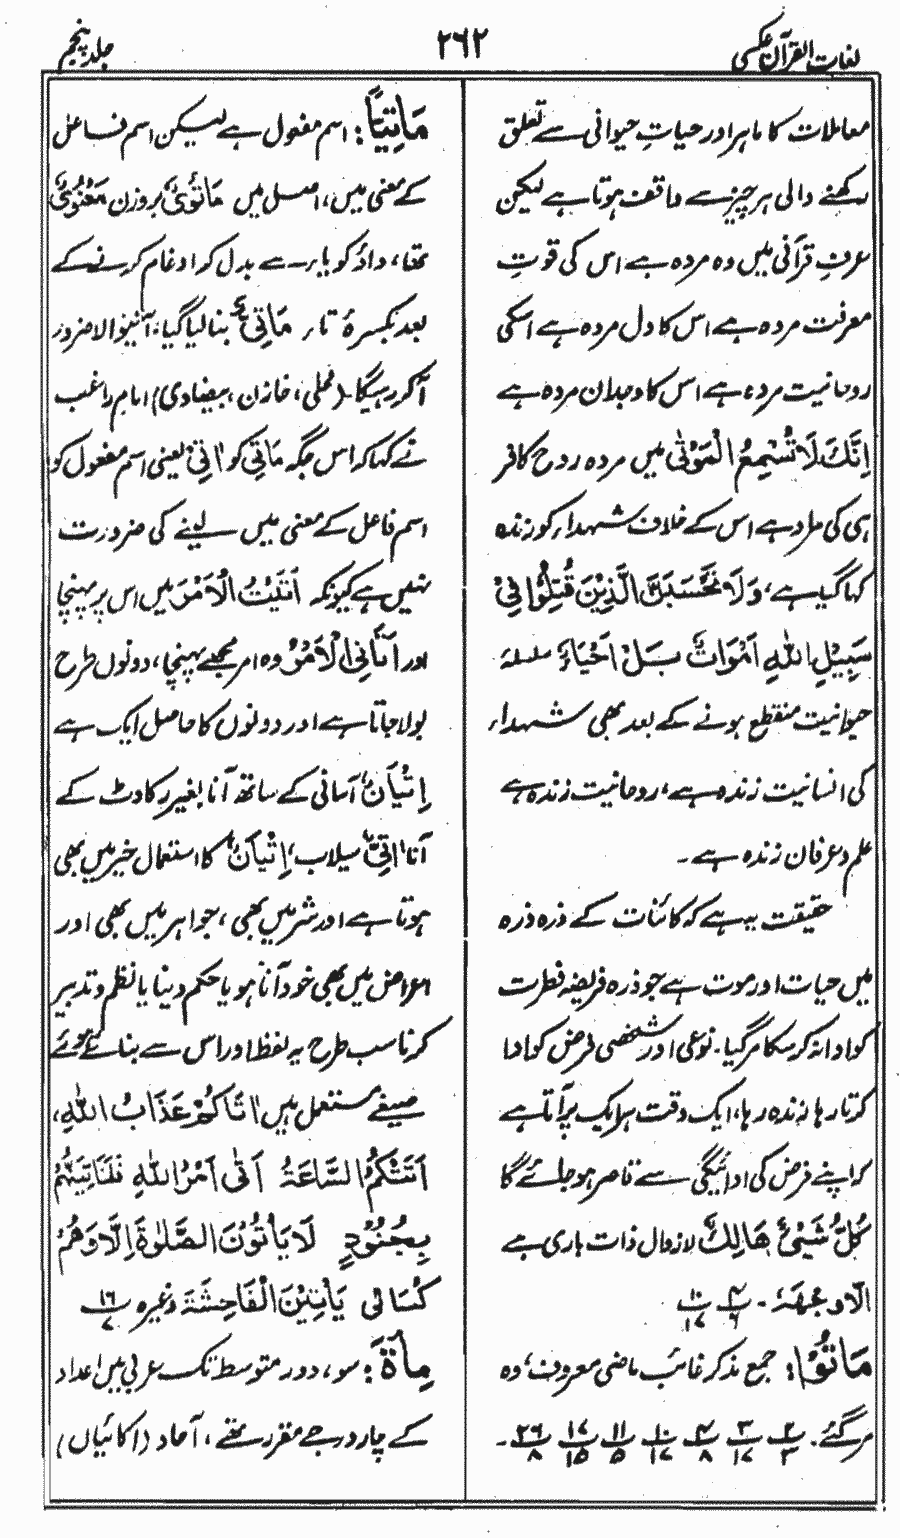 لغات القرآن عکسی
۲۶۲
جلد پنجم
معاملات کا ماہر اور حیاتِ حیوانی سے تعلق
رکھنے والی ہر چیز سے واقف ہوتا ہے لیکن
عرفِ قرآنی میں وہ مردہ ہے اس کی قوتِ
معرفت مردہ ہے اس کا دل مردہ ہے اسکی
روحانیت مردہ ہے اس کا وجدان مردہ ہے
اِنَّكَ لَا تُسْمِعُ الْمَوْتٰى میں مردہ روح کافر
ہی کی مراد ہے اس کے خلاف شہداء کو زندہ
کہا گیا ہے، وَلَا تَحْسَبَنَّ الَّذِيْنَ قُتِلُوْا فِىْ
سَبِيْلِ اللّٰهِ اَمْوَاتًا بَلْ اَحْيَاءٌ سلسلۂ
حیوانیت منقطع ہونے کے بعد بھی شہداء
کی انسانیت زندہ ہے، روحانیت زندہ ہے
علم و عرفان زندہ ہے۔
حقیقت یہ ہے کہ کائنات کے ذرہ ذرہ
میں حیات اور موت ہے جو ذرہ فریضۂ فطرت
کو ادا نہ کر سکا مر گیا۔ نوعی اور شخصی فرض کو ادا
کرتا رہا زندہ رہا، ایک وقت ہر ایک پر آتا ہے
کہ اپنے فرض کی ادائیگی سے قاصر ہو جائے گا
كُلُّ شَيْئٍ هَالِكٌ لازوال ذات باری ہے
الّا وجھہٗ۔ ۴/۶ ۱۰/۱۷
مَاتُوْا: جمع مذکر غائب ماضی معروف، وہ
مر گئے۔ ۲/۳ ۳/۱۷ ۴/۸ ۱۰/۱۷ ۱۱/۵ ۱۷/۱۵ ۲۶/۸۔
مَاتِيًّا: اسم مفعول ہے لیکن اسم فاعل
کے معنی میں، اصل میں مَاتُوْىٌ بروزن مَعْنُوْىٌ
تھا، واؤ کو یاء سے بدل کر ادغام کرنے کے
بعد بکسرۂ تاء مَاتِىٌّ بنا لیا گیا، آنیوالا ضرور
آکر رہیگا۔ (محلی، خازن، بیضاوی) امام راغب
نے کہا کہ اس جگہ مَاتِى کو اٰتِىْ یعنی اسم مفعول کو
اسم فاعل کے معنی میں لینے کی ضرورت
نہیں ہے کیونکہ اَتَيْتُ الْاَمْرَ میں اس پر پہنچا
اور اَتَانِى الْاَمْرُ وہ امر مجھے پہنچا، دونوں طرح
بولا جاتا ہے اور دونوں کا حاصل ایک ہے
اِتْيَانٌ آسانی کے ساتھ آنا بغیر رکاوٹ کے
آنا، اٰتِىٌّ سیلاب، اِتْيَانٌ کا استعمال خیر میں بھی
ہوتا ہے اور شر میں بھی، جواہر میں بھی اور
اعراض میں بھی خود آنا ہو یا حکم دینا یا نظم و تدبیر
کرنا سب طرح یہ لفظ اور اس سے بنائے ہوئے
صیغے مستعمل ہیں اَتَاكُمْ عَذَابُ اللّٰهِ،
اَتَتْكُمُ السَّاعَةُ اَتٰى اَمْرُ اللّٰهِ فَلَنَاْتِيَنَّهُمْ
بِجُنُوْدٍ لَا يَاْتُوْنَ الصَّلٰوةَ اِلَّا وَهُمْ
كُسَالٰى يَاْتِيْنَ الْفَاحِشَةَ وغیرہ ۱۶/۷
مِأَةٌ: سو، دور متوسط تک عربی میں اعداد
کے چار درجے مقرر تھے، آحاد (اکائیاں)